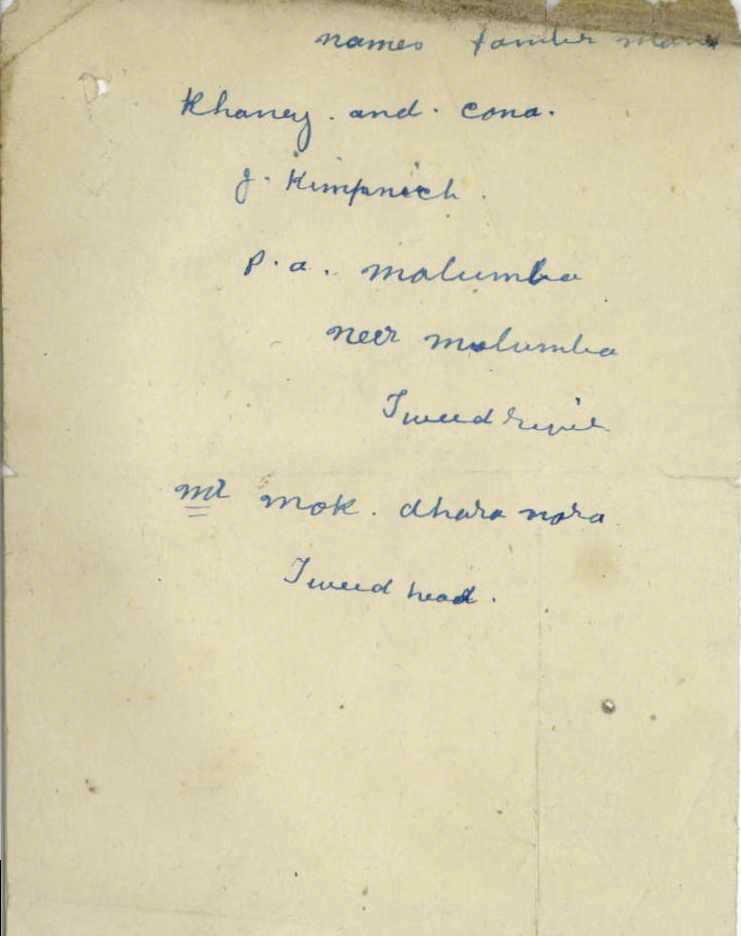 names
Khaney. and. cona.
J. Kimpnich.
P. a. molumba
neer molumba
Tweed
mr mok. dhara nora
Tweed head.